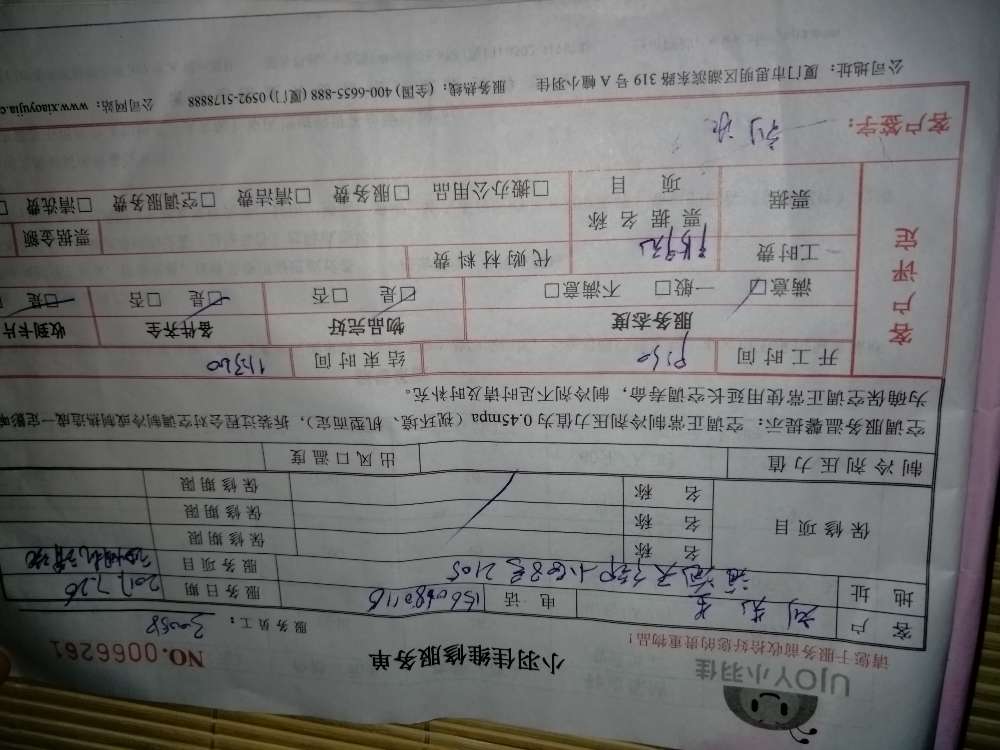 UJOY小羽佳
请您于服务前收拾好您的贵重物品！
小羽佳维修服务单
NO.0066261
服务员工：
客户 刘先生 电话 服务日期 2017.7.26
地址 服务项目
保修项目
名称 保修期限
名称 保修期限
名称 保修期限
制冷剂压力值 出风口温度
空调服务温馨提示：空调正常制冷剂压力值为0.45mpa（视环境、机型而定），拆装过程会对空调制冷或制热造成一定影响
为确保空调正常使用延长空调寿命，制冷剂不足时请及时补充。
客户评定
开工时间 结束时间
服务态度 物品完好 备件齐全 收到卡片
满意□ 一般□ 不满意□ □是 □否 □是 □否 □是
工时费 代购材料费
票据 票据名称 票据金额
项目 □搬办公用品 □服务费 □清洁费 □空调费 □清洗费
客户签字：
公司地址：厦门市思明区湖滨东路319号A幢小羽佳 服务热线：(全国)400-6655-888 (厦门)0592-5178888 公司网站：www.xiaoyujia.c